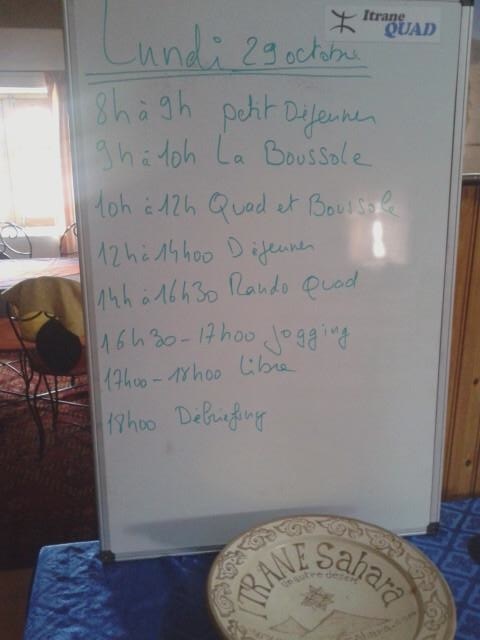 Itrane
QUAD
Lundi 29 octobre
8h à 9h petit Déjeuner
9h à 10h La Boussole
10h à 12h Quad et Boussole
12h à 14h00 Déjeuner
14h à 16h30 Rando Quad
16h30-17h00 jogging
17h00-18h00 Libre
18h00 Débriefing
ITRANE Sahara
un autre désert